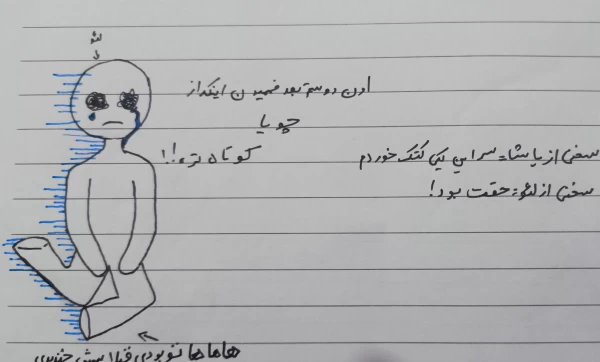 لئو
اون دوستم بعد فهمیدن اینکه از
چویا
کوتاه تره!!
سخنی از پاشا: سر این یکی کتک خوردم
سخنی از لئو: حقت بود!
هاهاها تو بودی قبلا بهش